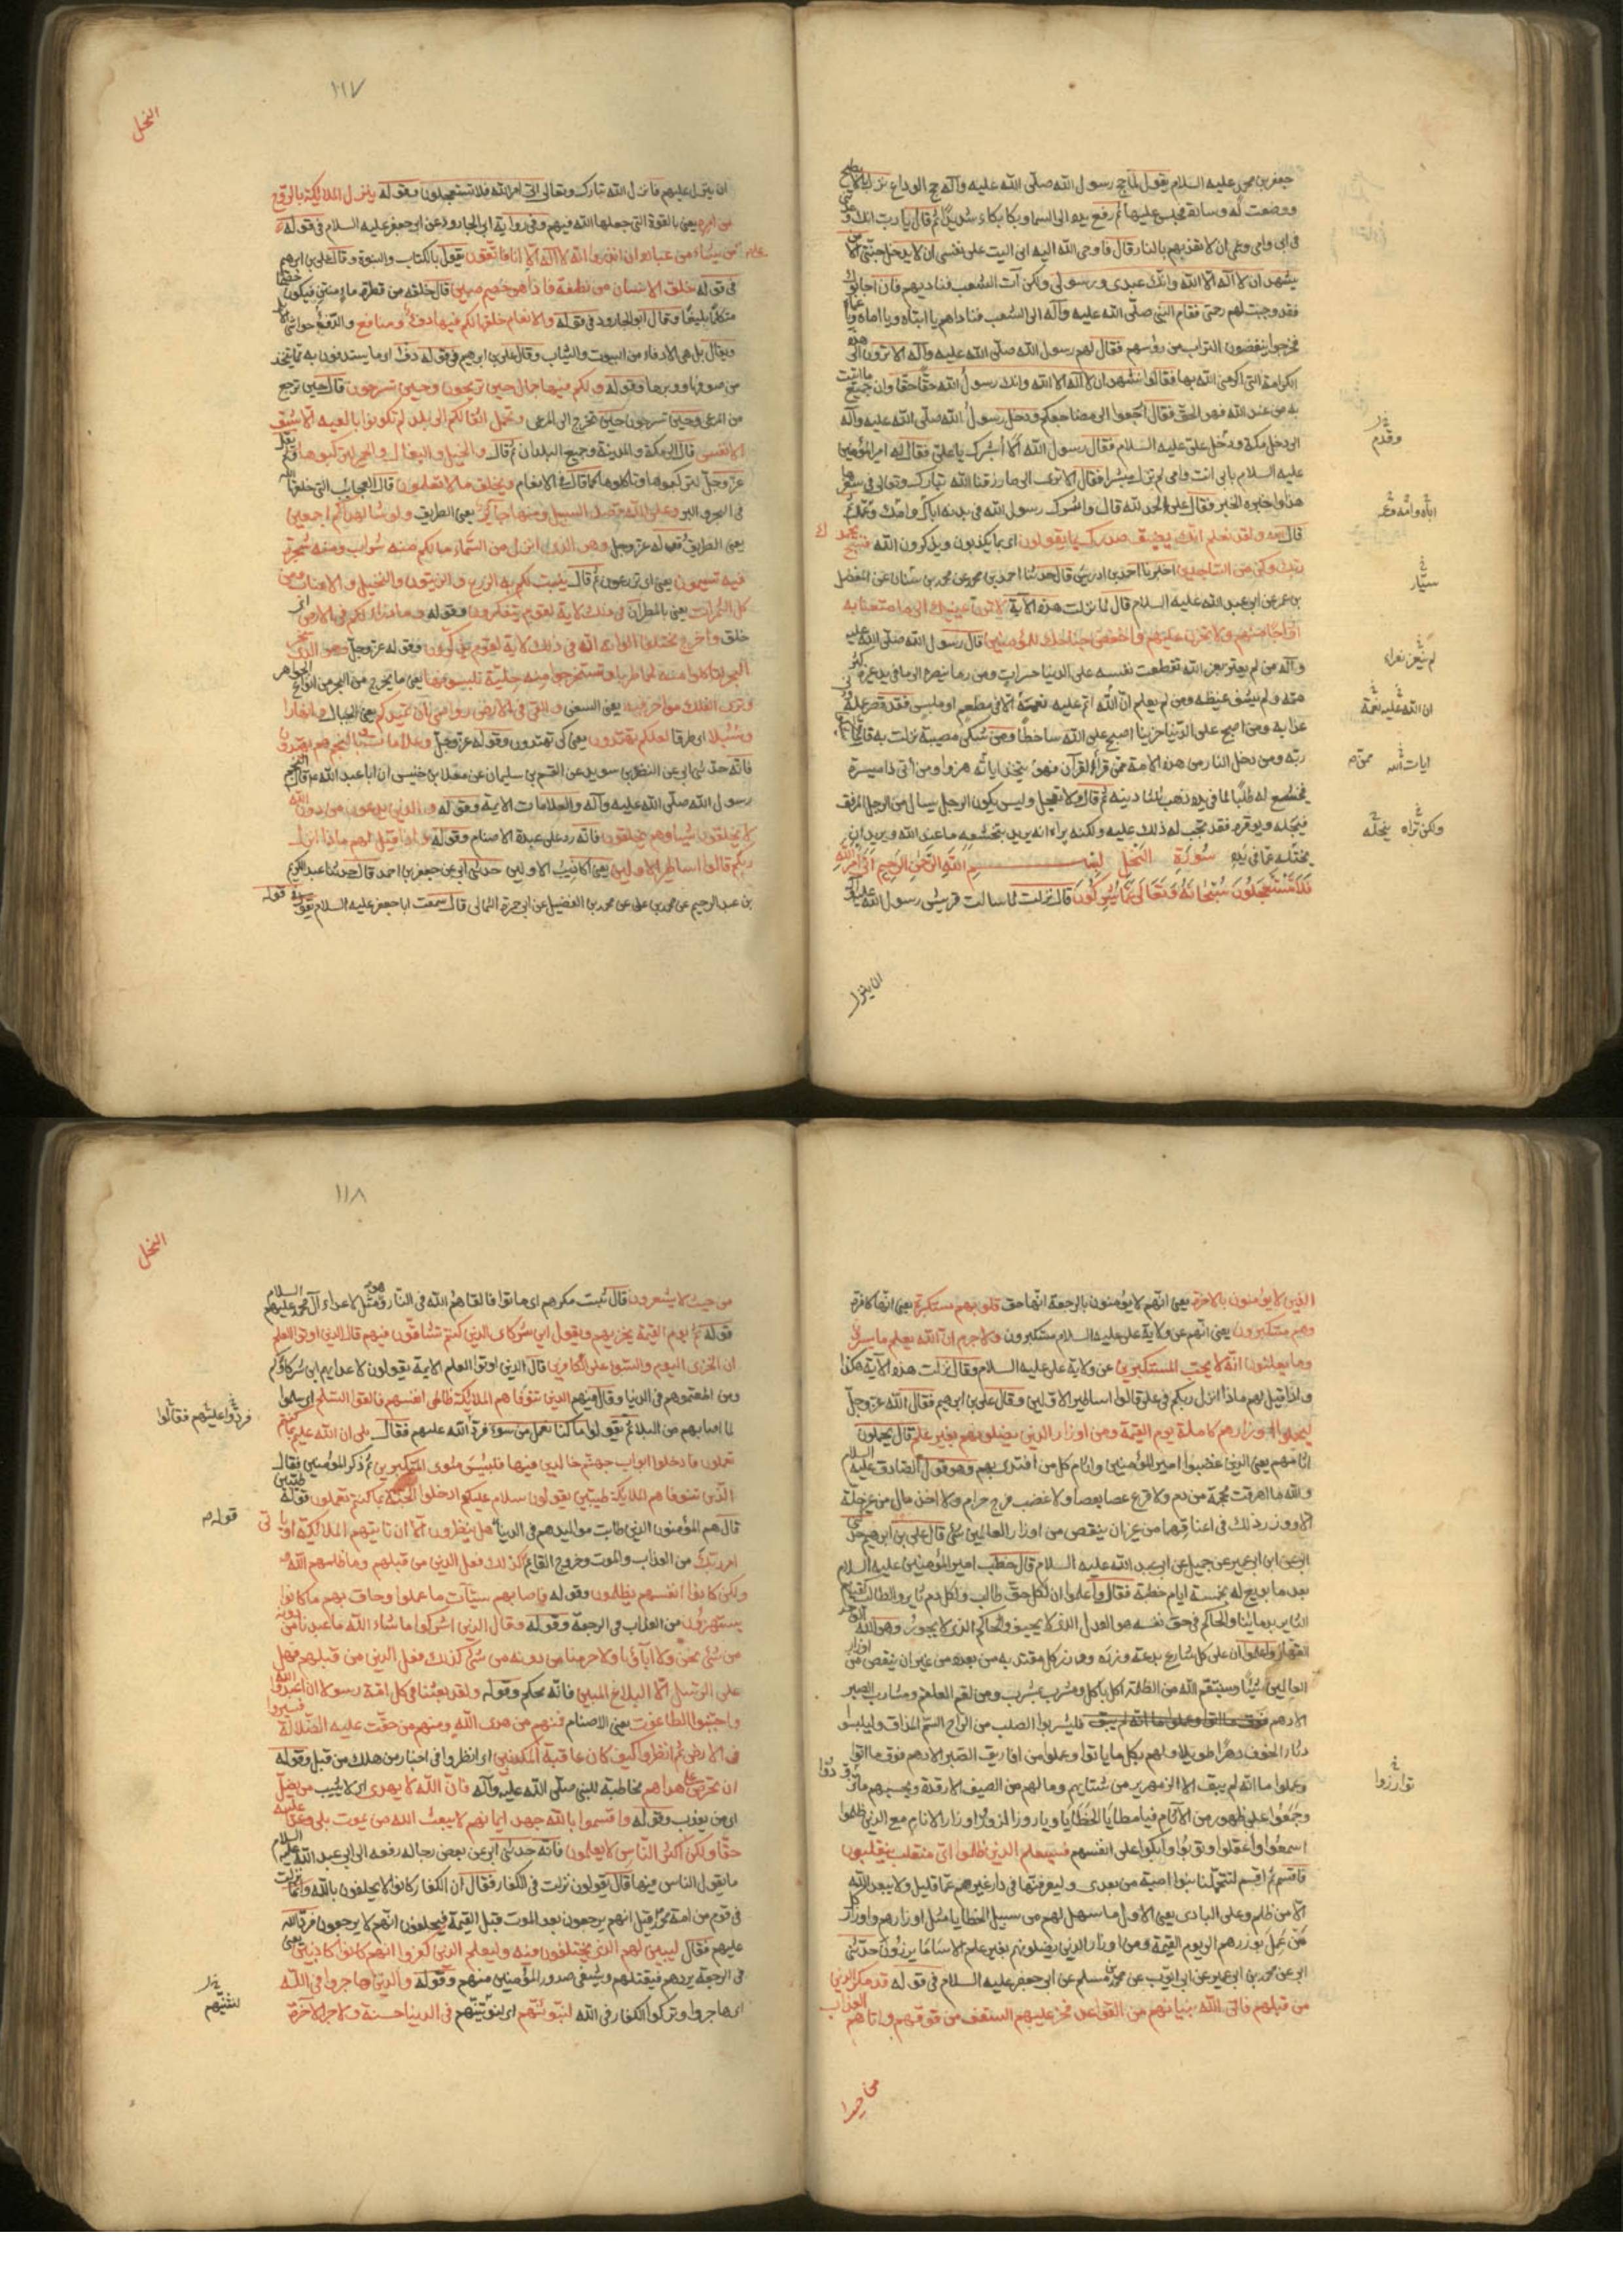 جعفر بن محمد عليه السلام يقول لما حج رسول الله صلى الله عليه وآله حج الوداع نزل بالابطح
ووضعت له وسادة فجلس عليها ثم رفع يده الى السماء وبكا بكاء شديدا ثم قال يا رب انك وعدتني
فى ابى وامى وعمى ان لا تعذبهم بالنار قال فاوحى الله اليه انى اليت على نفسى ان لا يدخل جنتى الا من
يشهد ان لا اله الا الله وانك عبدى ورسولى ولكن آت الشعب فنادهم فان اجابوك
فقد وجبت لهم رحمتى فقام النبى صلى الله عليه وآله الى الشعب فناداهم يا ابتاه ويا اماه ويا عماه
فخرجوا ينفضون التراب من رؤسهم فقال لهم رسول الله صلى الله عليه وآله الا ترون الى هذه
الكرامة التى اكرمنى الله بها فقالوا نشهد ان لا اله الا الله وانك رسول الله حقا حقا وان جميع ما اتيت
به من عند الله فهو الحق فقال ارجعوا الى مضاجعكم ودخل رسول الله صلى الله عليه وآله
وقدم
الى دخل مكة ودخل على عليه السلام فقال رسول الله الا ابشرك يا على فقال له امير المؤمنين
عليه السلام بابى انت وامى لم تزل مبشرا فقال الا ترى الى ما رزقنا الله تبارك وتعالى فى سفرنا
هذا واخبره الخبر فقال على الحمد لله قال واشرك رسول الله فى بدنه اباك وامك وعمك
اباه وامه وعمه
قال الله ولقد نعلم انك يضيق صدرك بما يقولون اى بما يكذبون ويذكرون الله فسبح بحمد
ربك وكن من الساجدين اخبرنا احمد بن ادريس قال حدثنا احمد بن محمد عن محمد بن سنان عن المفضل
سيار
بن عمر عن ابى عبد الله عليه السلام قال لما نزلت هذه الآية لا تمدن عينيك الى ما متعنا به
ازواجا منهم ولا تحزن عليهم واخفض جناحك للمؤمنين قال رسول الله صلى الله عليه
وآله من لم يعتز بعز الله تقطعت نفسه على الدنيا حسرات ومن رما ببصره الى ما فى يد غيره كثر
همه ولم يشف غيظه ومن لم يعلم ان لله اثم عليه نعمة الا فى مطعم او ملبس فقد قصر عمله ودنى
ان لله عليه نعمة
عذابه ومن اصبح على الدنيا حزينا اصبح على الله ساخطا ومن شكى مصيبة نزلت به فانما يشكو
ربه ومن دخل النار من هذه الامة ممن قرأ القرآن فهو يتخذ اياته هزوا ومن أتى ذا ميسرة
ايات الله
فتخشع له طلبا لما فى يده ذهب ثلثا دينه ثم قال ولا تعجل وليس يكون الرجل يسال من الرجل المرفق
فيجله ويوقره فقد يجب له ذلك عليه ولكنه يراه انه يريد بتخشعه ما عند الله ويريد ان
ولكن تراه
يختله عما فى يديه سورة النحل بسم الله الرحمن الرحيم اتى امر الله
فلا تستعجلون سبحانه وتعالى عما يشركون قال نزلت لما سالت قريش رسول الله صلى الله عليه وآله
ان ينزل
١١٧
النحل
ان ينزل عليهم فانزل الله تبارك وتعالى اتى امر الله فلا تستعجلون وقوله ينزل الملائكة بالروح
من امره يعنى بالقوة التى جعلها الله فيهم وفى رواية ابى الجارود عن ابى جعفر عليه السلام فى قوله
على من يشاء من عباده ان انذروا انه لا اله الا انا فاتقون يقول بالكتاب والنبوة وقال على بن ابرهيم
فى قوله خلق الانسان من نطفة فاذا هو خصيم مبين قال خلقه من قطرة ماء منتن فيكون خصيما
متكلما بليغا وقال ابو الجارود فى قوله والانعام خلقها لكم فيها دفء ومنافع والدفء حواشى الابل
ويقال بل هى الادفاء من البيوت والثياب وقال على بن ابرهيم فى قوله دفء اى ما يستدفون به مما يتخذ
من صوفها ووبرها وقوله ولكم فيها جمال حين تريحون وحين تسرحون قال حين ترجع
من المرعى وحين تسرحون حين تخرج الى المرعى وتحمل اثقالكم الى بلد لم تكونوا بالغيه الا بشق
الانفس قال الى مكة والمدينة وجميع البلدان ثم قال والخيل والبغال والحمير لتركبوها ولم يقل
عز وجل لتركبوها وتاكلوها كما قال فى الانعام ويخلق ما لا تعلمون قال العجايب التى خلقها الله
فى البحر والبر وعلى الله قصد السبيل ومنها جائر يعنى الطريق ولو شاء لهداكم اجمعين
يعنى الطريق وقوله عز وجل وهو الذى انزل من السماء ماء لكم منه شراب ومنه شجر
فيه تسيمون يعنى اى تزرعون ثم قال ينبت لكم به الزرع والزيتون والنخيل والاعناب ومن
كل الثمرات يعنى بالمطر ان فى ذلك لاية لقوم يتفكرون وقوله وما ذرأ لكم فى الارض اى
خلق واخرج مختلفا الوانه ان فى ذلك لاية لقوم يذكرون وقوله عز وجل وهو الذى سخر
البحر لتاكلوا منه لحما طريا وتستخرجوا منه حلية تلبسونها يعنى ما يخرج من البحر من انواع الجواهر
وترى الفلك مواخر فيه يعنى السفن والقى فى الارض رواسى ان تميد بكم يعنى الجبال وانهارا
وسبلا اى طرقا لعلكم تهتدون يعنى كى تهتدون وقوله عز وجل وعلامات وبالنجم هم يهتدون
فانه حدثنى ابى عن النضر بن سويد عن القسم بن سليمان عن معلى بن خنيس ان ابا عبد الله قال النجم
رسول الله صلى الله عليه وآله والعلامات الائمة وقوله والذين يدعون من دون الله
لا يخلقون شيئا وهم يخلقون فانه رد على عبدة الاصنام وقوله واذا قيل لهم ماذا انزل
ربكم قالوا اساطير الاولين يعنى اكاذيب الاولين حدثنى ابى عن جعفر بن احمد قال حدثنا عبد الكريم
بن عبد الرحيم عن محمد بن على عن محمد بن الفضيل عن ابى حمزة الثمالى قال سمعت ابا جعفر عليه السلام يقول قوله
الذين لا يؤمنون بالاخرة يعنى انهم لا يؤمنون بالرجعة انها حق قلوبهم مستكبرة يعنى انها كافرة
وهم مستكبرون يعنى انهم عن ولاية على عليه السلام مستكبرون ولا جرم ان الله يعلم ما يسرون
وما يعلنون انه لا يحب المستكبرين عن ولاية على عليه السلام وقال نزلت هذه الآية هكذا
واذا قيل لهم ماذا انزل ربكم فى على قالوا اساطير الاولين وقال على بن ابرهيم فقال الله عز وجل
ليحملوا اوزارهم كاملة يوم القيمة ومن اوزار الذين يضلونهم بغير علم قال يحملون
اثامهم يعنى الذين غصبوا امير المؤمنين واثام كل من اقتدى بهم وهو قول الصادق عليه السلام
والله ما اهرقت محجمة من دم ولا قرع عصا بعصا ولا غصب فرج حرام ولا اخذ مال من غير حله
الا ووزر ذلك فى اعناقهما من غير ان ينقص من اوزار العالمين شئ قال على بن ابرهيم حدثنى
ابى عن ابن ابى عمير عن جميل عن ابى عبد الله عليه السلام قال خطب امير المؤمنين عليه السلام
بعد ما بويع له بخمسة ايام خطبة فقال واعلموا ان لكل حق طالب ولكل دم ثاير والطالب كقيام
الثاير بدمائنا والحاكم فى حق نفسه هو العدل الذى لا يحيف والحاكم الذى لا يجور وهو الله الواحد
القهار واعلموا ان على كل شارع بدعة وزره ووزر كل مقتد به من بعده من غير ان ينقص من اوزار
العاملين شيئا وسينتقم الله من الظلمة اكل باكل ومشرب بشرب ومن لقم العلقم ومشارب الصبر
الادهم فليشربوا الصلب من الراح السم المذاق وليلبسوا
دثار الخوف دهرا طويلا ولهم بكل ما ياتوا وعملوا من افاريق الصبر الادهم فوق ما اتوا
وعملوا ما انه لم يبق الا الزمهرير من شتايهم وما لهم من الصيف الا رقدة ويحسبهم ما
توازروا
وجمعوا على ظهورهم من الآثام فيا مطايا الخطايا ويا زور الزور اوزار الاثام مع الذين ظلموا
اسمعوا واعقلوا وتوبوا وابكوا على انفسهم فسيعلم الذين ظلموا اى منقلب ينقلبون
فاقسم ثم اقسم لتتحملنها بنوا امية من بعدى وليعرفنها فى دار غيرهم عما قليل ولا يبعد الله
الا من ظلم وعلى البادى يعنى الاول ما سهل لهم من سبيل الخطايا مثل اوزارهم واوزار كل
من عمل بوزرهم الى يوم القيمة ومن اوزار الذين يضلونهم بغير علم الا ساء ما يزرون حدثنى
ابى عن محمد بن ابى عمير عن ابى ايوب عن محمد بن مسلم عن ابى جعفر عليه السلام فى قوله قد مكر الذين
من قبلهم فاتى الله بنيانهم من القواعد فخر عليهم السقف من فوقهم واتاهم العذاب
من حيث
١١٨
النحل
من حيث لا يشعرون قال ثبت مكرهم اى ماتوا فالقاهم الله فى النار وهو مثل لاعداء آل محمد عليهم السلام
قوله ثم يوم القيمة يخزيهم ويقول اين شركاى الذين كنتم تشاقون فيهم قال الذين اوتوا العلم
ان الخزى اليوم والسوء على الكافرين قال الذين اوتوا العلم الائمة يقولون لاعدايهم اين شركاؤكم
ومن اطعتموهم فى الدنيا وقال فيهم الذين تتوفاهم الملائكة ظالمى انفسهم فالقوا السلم اى سلموا
لما اصابهم من البلاء ثم يقولوا ما كنا نعمل من سوء فرد الله عليهم فقال بلى ان الله عليم بما كنتم
فردوا عليهم فقالوا
تعملون فادخلوا ابواب جهنم خالدين فيها فلبئس مثوى المتكبرين ثم ذكر المؤمنين فقال
الذين تتوفاهم الملايكة طيبين يقولون سلام عليكم ادخلوا الجنة بما كنتم تعملون قوله طيبين
قال هم المؤمنون الذين طابت مواليدهم فى الدنيا هل ينظرون الا ان تاتيهم الملائكة او ياتى
قوله
امر ربك من العذاب والموت وخروج القايم كذلك فعل الذين من قبلهم وما ظلمهم الله
ولكن كانوا انفسهم يظلمون وقوله فاصابهم سيئات ما عملوا وحاق بهم ما كانوا به
يستهزؤن من العذاب فى الرجعة وقوله وقال الذين اشركوا لو شاء الله ما عبدنا من دونه
من شئ نحن ولا اباؤنا ولا حرمنا من دونه من شئ كذلك فعل الذين من قبلهم فهل
على الرسل الا البلاغ المبين فانه محكم وقوله ولقد بعثنا فى كل امة رسولا ان اعبدوا الله
واجتنبوا الطاغوت يعنى الاصنام فمنهم من هدى الله ومنهم من حقت عليه الضلالة فسيروا
فى الارض ثم انظروا كيف كان عاقبة المكذبين اى انظروا فى اخبار من هلك من قبل وقوله
ان تحرص على هداهم مخاطبة للنبى صلى الله عليه وآله فان الله لا يهدى اى لا يثيب من يضل
اى من يعذب وقوله واقسموا بالله جهد ايمانهم لا يبعث الله من يموت بلى وعدا عليه
حقا ولكن اكثر الناس لا يعلمون فانه حدثنى ابى عن بعض رجاله رفعه الى ابى عبد الله عليه السلام
ما يقول الناس فيها قال يقولون نزلت فى الكفار فقال ان الكفار كانوا لا يحلفون بالله وانما نزلت
فى قوم من امة محمد قيل لهم يرجعون بعد الموت قبل القيمة فيحلفون انهم لا يرجعون فرد الله
عليهم فقال ليبين لهم الذى يختلفون فيه وليعلم الذين كفروا انهم كانوا كاذبين يعنى
فى الرجعة يردهم فيقتلهم ويشفى صدور المؤمنين منهم وقوله والذين هاجروا فى الله
اى هاجروا وتركوا الكفار فى الله لنبوئنهم اى لنثوينهم فى الدنيا حسنة ولاجر الآخرة